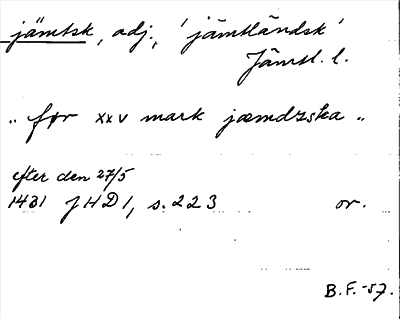 jämtsk, adj., 'jämtländsk'
Jämtl. l.
„ før xxv mark jæmdzska „
efter den 27/5
1431 JHD 1, s. 223 or.
B.F.-57.